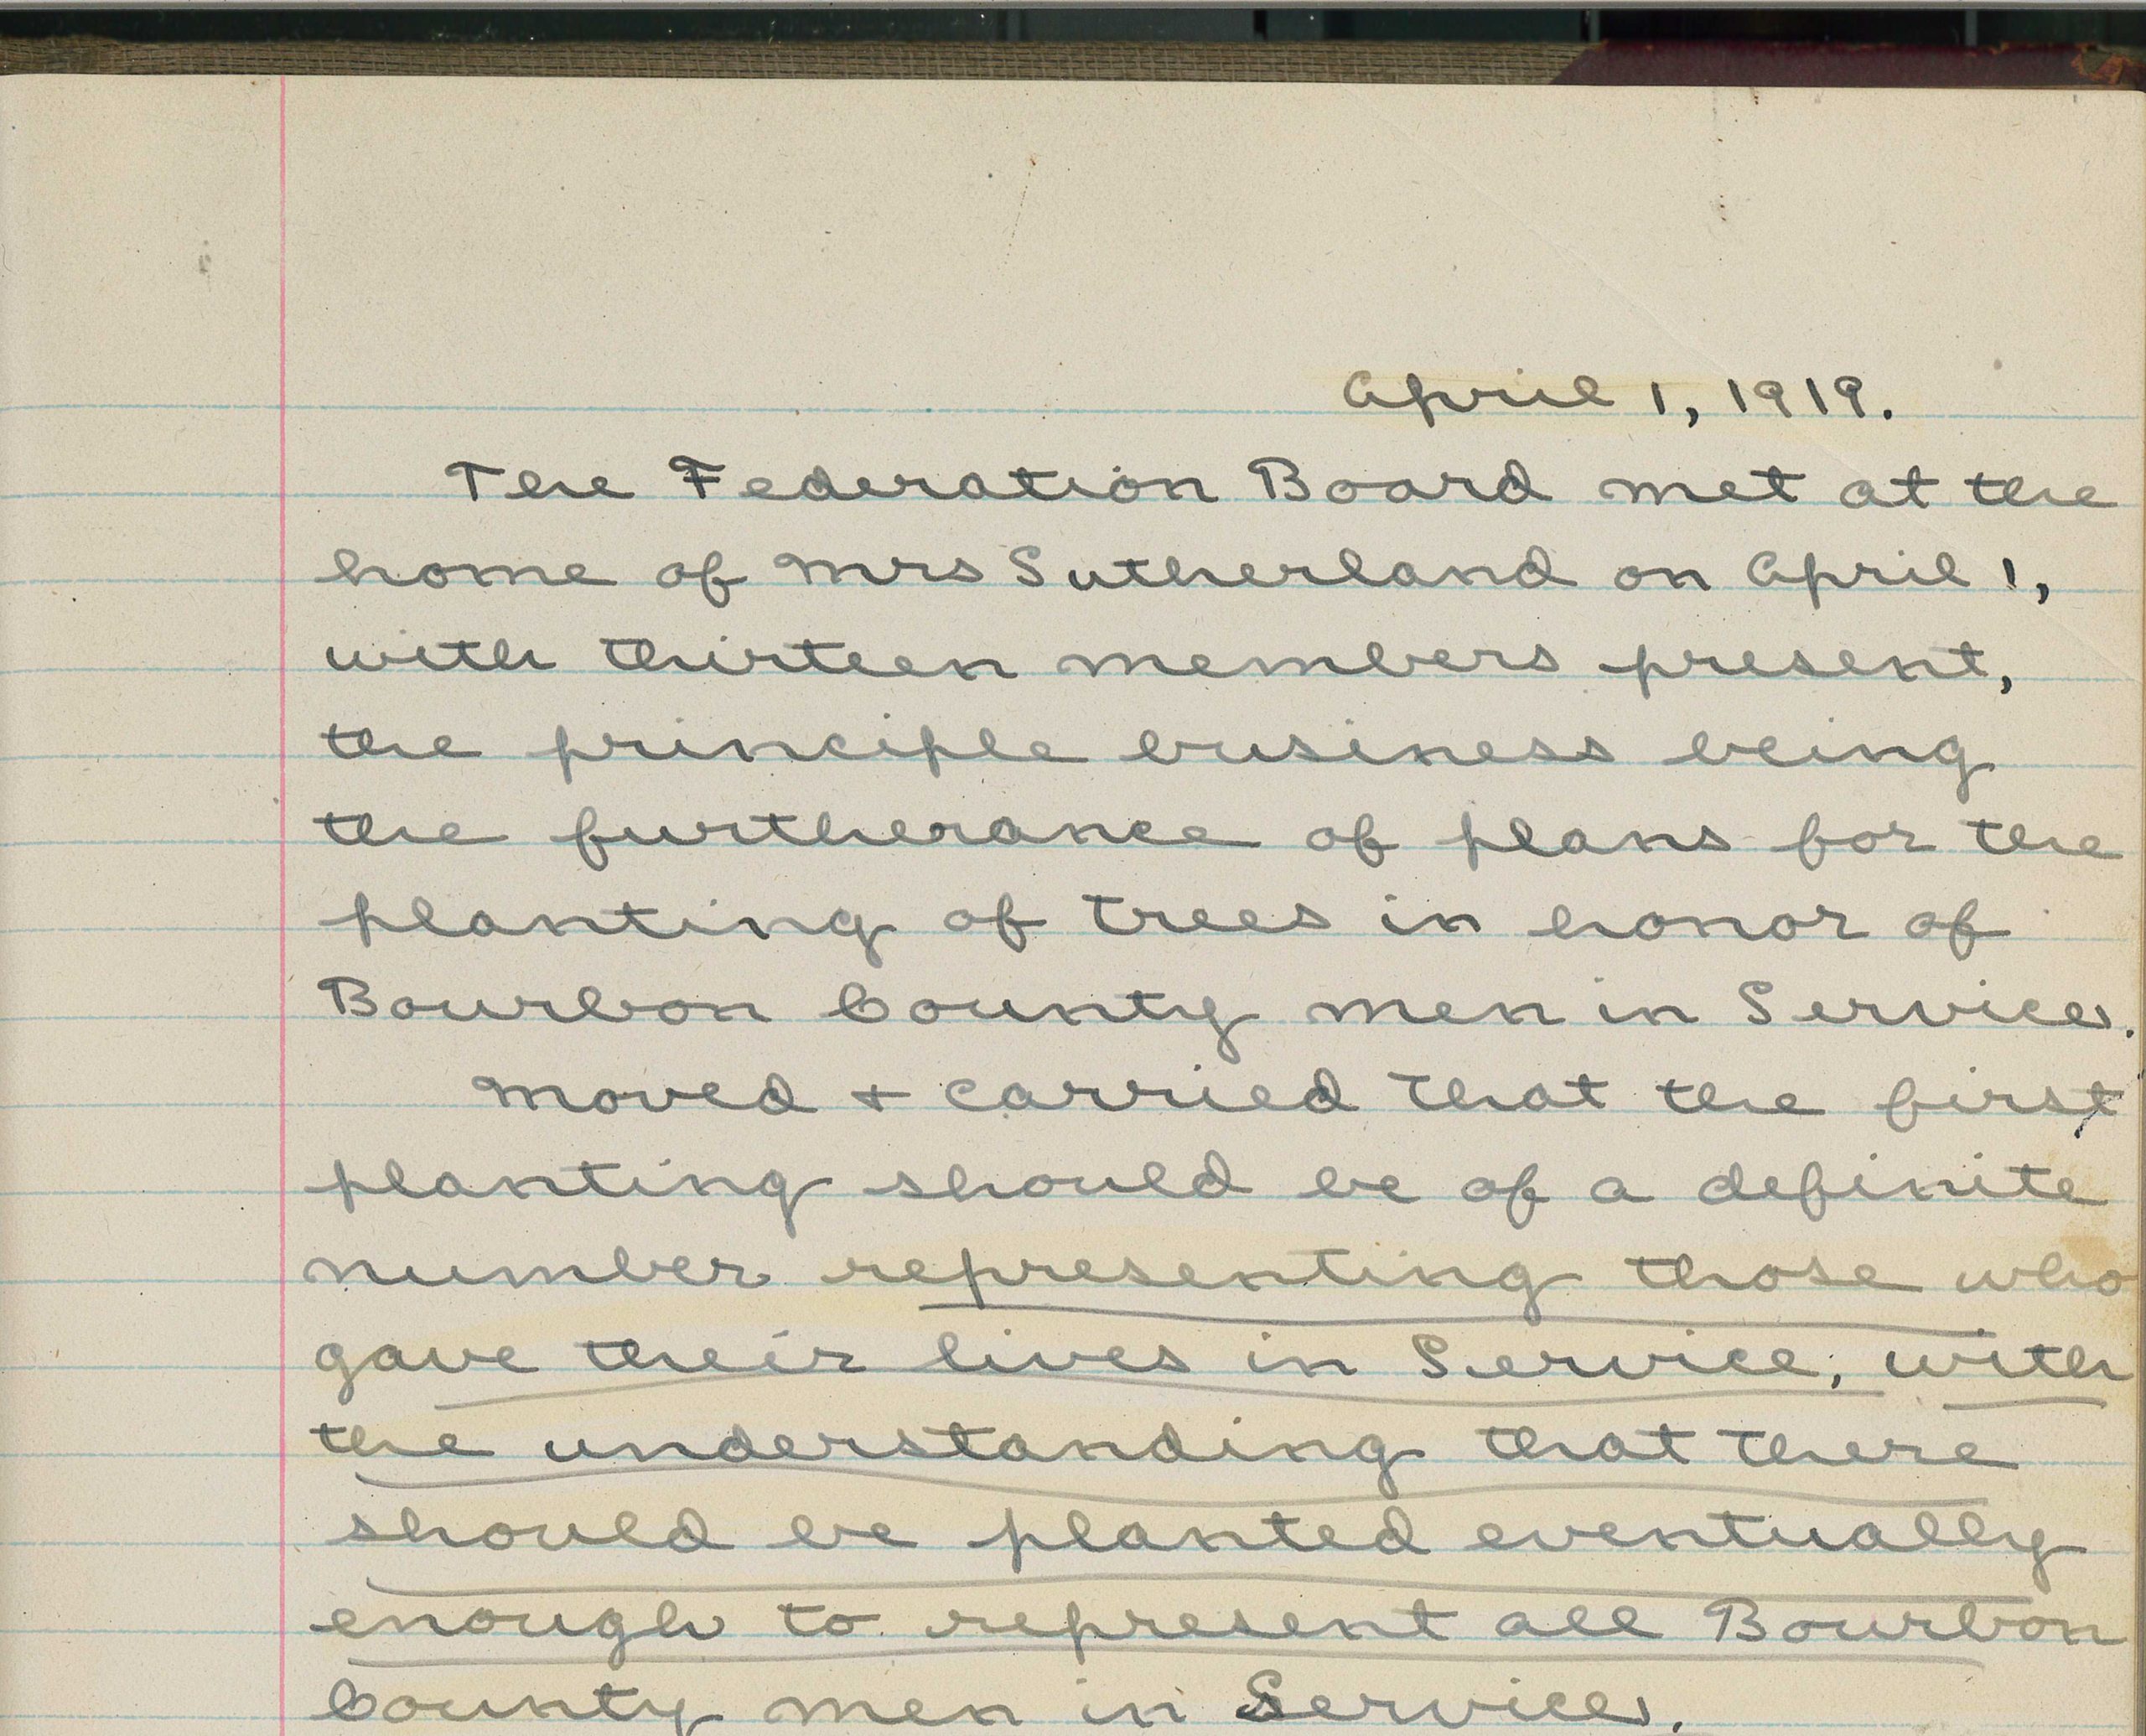 April 1, 1919.
The Federation Board met at the
home of Mrs Sutherland on April 1,
with thirteen members present,
the principle business being
the furtherance of plans for the
planting of trees in honor of
Bourbon County men in Service.
Moved + carried that the first
planting should be of a definite
number representing those who
gave their lives in Service, with
the understanding that there
should be planted eventually
enough to represent all Bourbon
County men in Service.